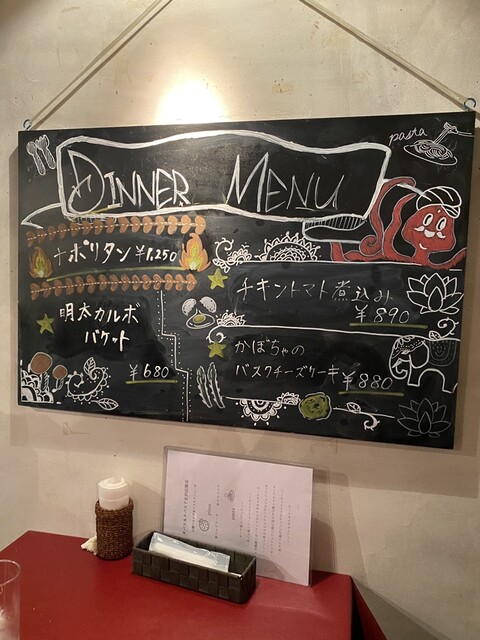 DINNER MENU
pasta
ナポリタン ¥1,250
明太カルボ
バケット
¥680
チキントマト煮込み
¥890
かぼちゃの
バスクチーズケーキ ¥880